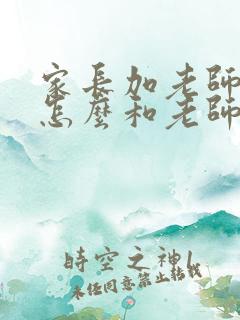 家長加老師
怎麼和老師
時空之神1
未經同意禁止轉載